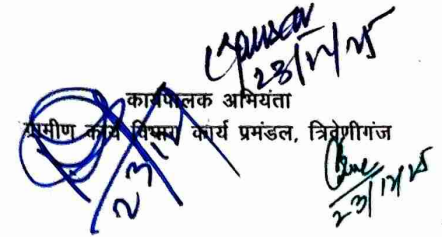 23/12/25
कार्यपालक अभियंता
ग्रामीण कार्य विभाग, कार्य प्रमंडल, त्रिवेणीगंज
23/12
23/12/25